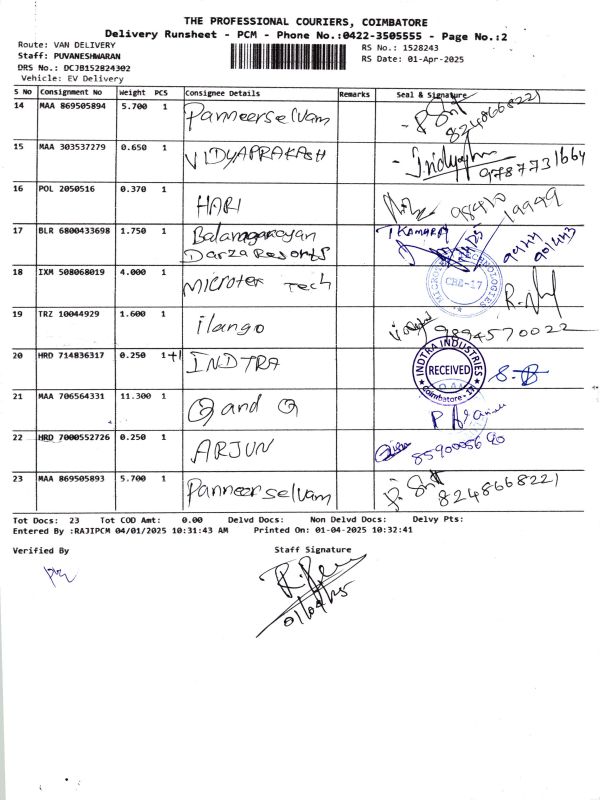 THE PROFESSIONAL COURIERS, COIMBATORE
Delivery Runsheet - PCM - Phone No.:0422-3505555 - Page No.:2
Route: VAN DELIVERY
RS No.: 1528243
Staff: PUVANESHWARAN
RS Date: 01-Apr-2025
DRS No.: DCJB152824302
Vehicle: EV Delivery
S No Consignment No Weight PCS Consignee Details Remarks Seal & Signature
14 MAA 869505894 5.700 1 Panneerselvam 8248668221
15 MAA 303537279 0.650 1 VIDYAPRAKASH 9787731664
16 POL 2050516 0.370 1 HARI 98410 19999
17 BLR 6800433698 1.750 1 Balanagarayan T KAMARAJ
Darza Resorts 9944 901443
18 IXM 508068019 4.000 1 Microtek Tech CBE-17
19 TRZ 10044929 1.600 1 ilango 9894570022
20 HRD 714836317 0.250 1+1 INDTRA INDTRA INDUSTRIES RECEIVED Coimbatore
21 MAA 706564331 11.300 1 Q and Q
22 HRD 7000552726 0.250 1 ARJUN 8590005690
23 MAA 869505893 5.700 1 Panneerselvam 8248668221
Tot Docs: 23 Tot COD Amt: 0.00 Delvd Docs: Non Delvd Docs: Delvy Pts:
Entered By :RAJIPCM 04/01/2025 10:31:43 AM Printed On: 01-04-2025 10:32:41
Verified By Staff Signature
01/04/25